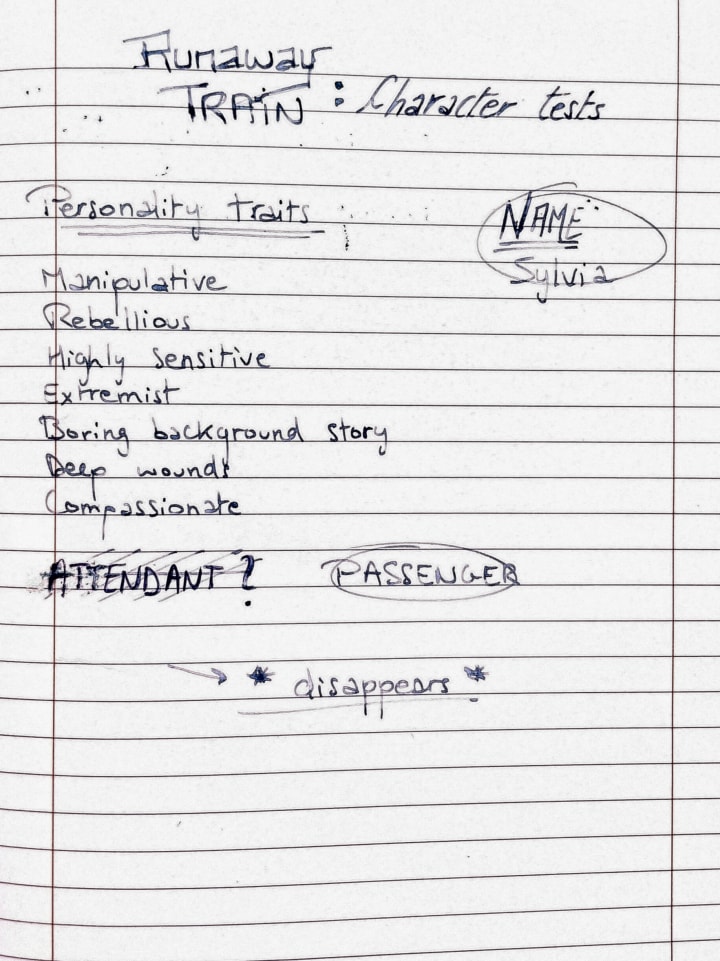 Runaway
TRAIN : Character tests
Personality traits
NAME:
Sylvia
Manipulative
Rebellious
Highly sensitive
Extremist
Boring background story
Deep wounds
Compassionate
ATTENDANT? PASSENGER
→ * disappears *